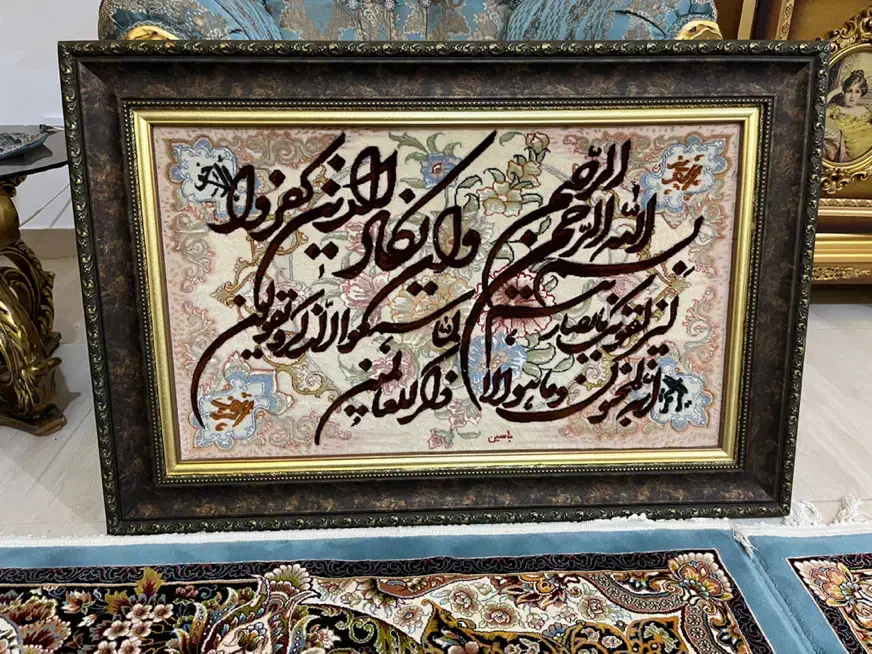 بسم الله الرحمن الرحیم
وان یکاد الذین کفروا
لیزلقونک بابصارهم لما سمعوا الذکر و یقولون
انه لمجنون وما هو الا ذکر للعالمین
یاسین